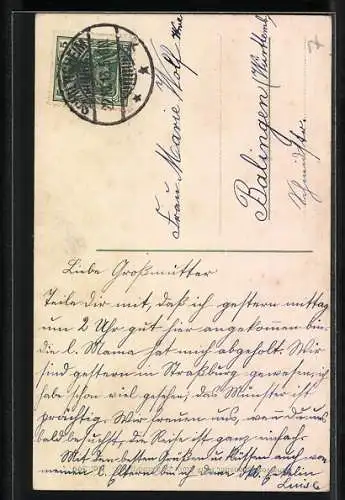 Frau Marie Wolf Wwe
Balingen (Württembg
Schmidstr.
7
Liebe Großmutter
Teile Dir mit, daß ich gestern mittag
um 2 Uhr gut hier angekommen bin.
die l. Mama hat mich abgeholt. Wir
sind gestern in Straßburg gewesen, ich
habe schon viel gesehen, das Münster ist
prächtig. Wir freuen uns, wenn du uns
bald besuchst, die Reise ist ganz einfach.
Mit den besten Grüßen u. Küssen auch von
meinen l. Eltern bin ich
Luise